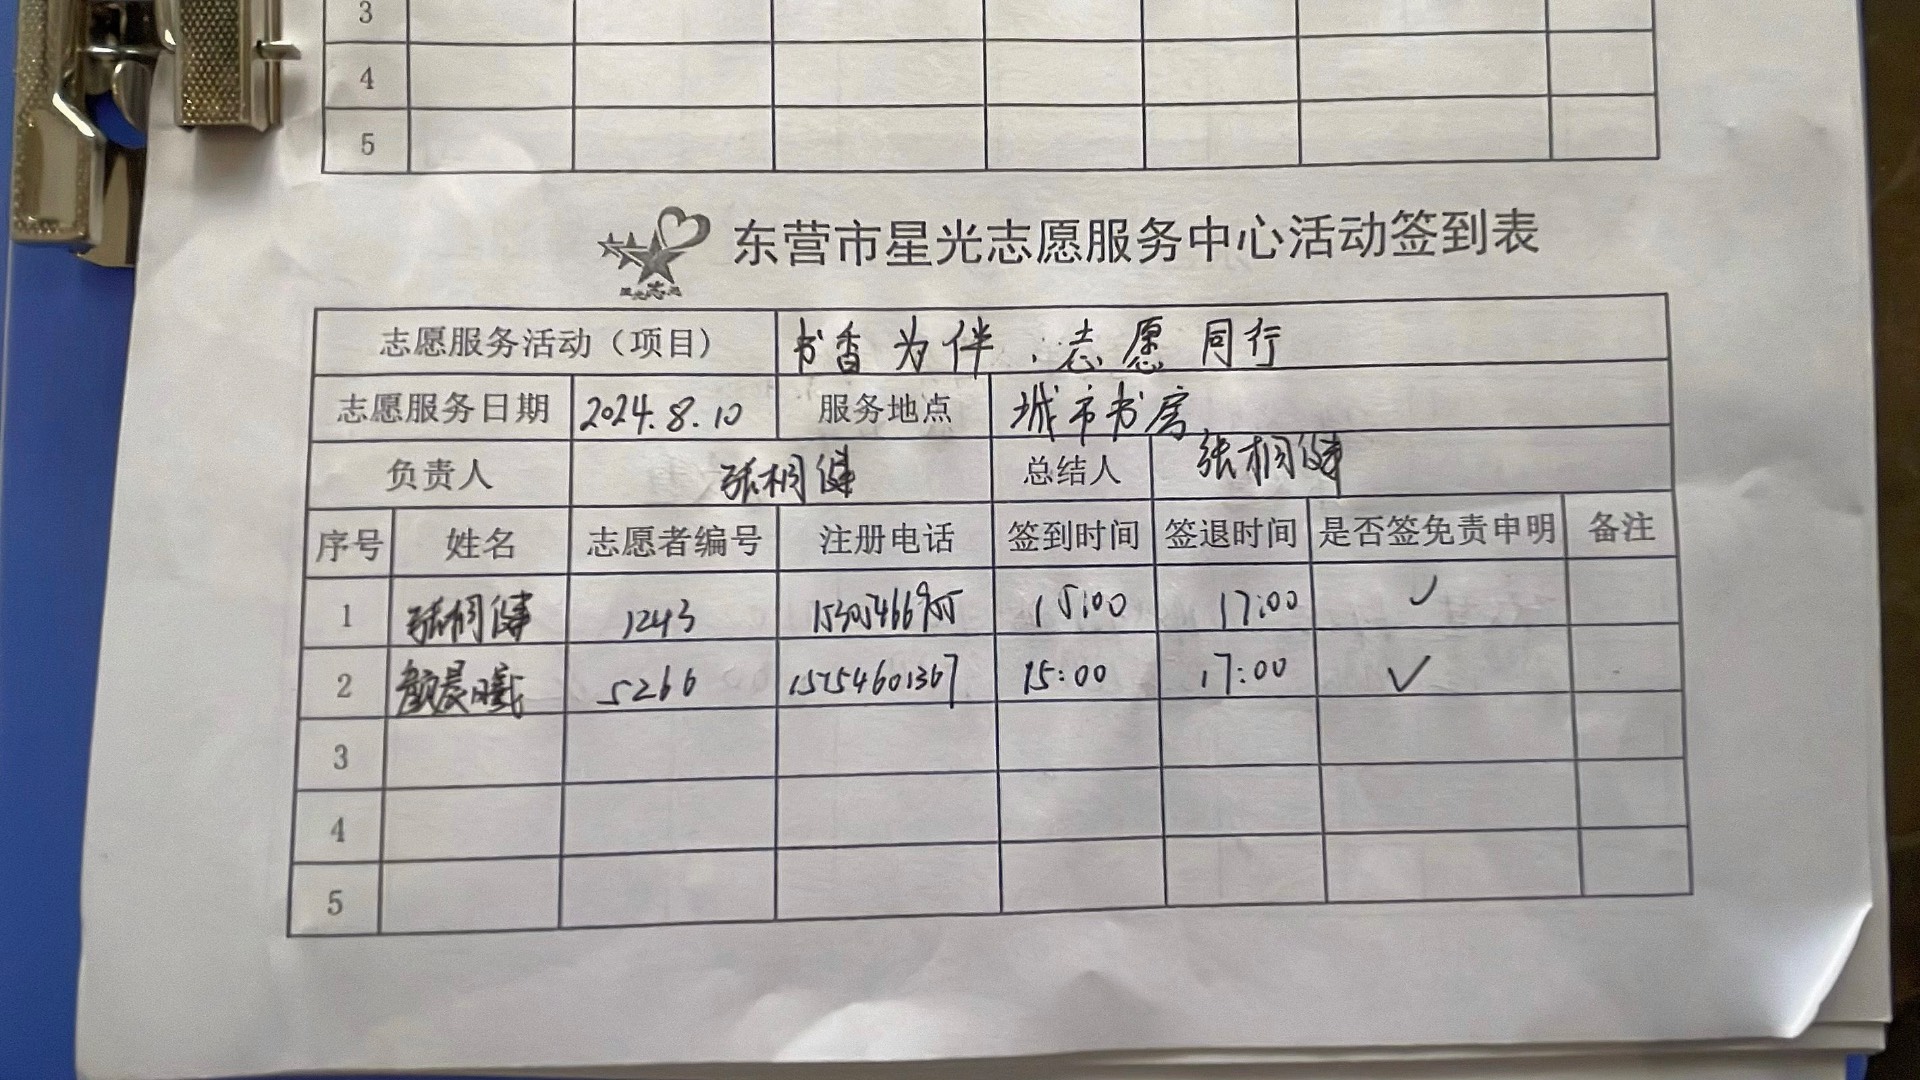 3
4
5
星光志愿
东营市星光志愿服务中心活动签到表
志愿服务活动（项目） 书香为伴.志愿同行
志愿服务日期 2024.8.10 服务地点 城市书房
负责人 张桐健 总结人 张桐健
序号 姓名 志愿者编号 注册电话 签到时间 签退时间 是否签免责申明 备注
1 张桐健 1243 15:00 17:00 ✓
2 颜晨曦 5266 15754601367 15:00 17:00 ✓
3
4
5